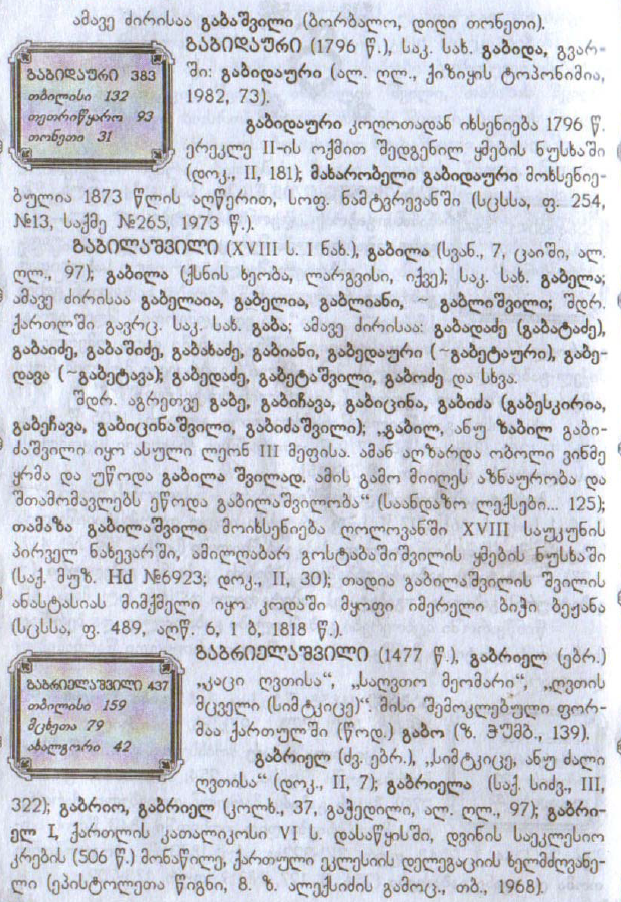 ამავე ძირისაა გაბაშვილი (ბორბალო, დიდი თონეთი).
გაბიდაური 383
თბილისი 132
თეთრიწყარო 93
თონეთი 31
გაბიდაური (1796 წ.), საკ. სახ. გაბიდა, გვარ-
ში: გაბიდაური (ალ. ღლ., ქიზიყის ტოპონიმია,
1982, 73).
გაბიდაური კოღოთადან იხსენიება 1796 წ.
ერეკლე II-ის ოქმით შედგენილ ყმების ნუსხაში
(დოკ., II, 181); მახარობელი გაბიდაური მოხსენიე-
ბულია 1873 წლის აღწერით, სოფ. ნამტვრევანში (სცსსა, ფ. 254,
№13, საქმე №265, 1973 წ.).
გაბილაშვილი (XVIII ს. I ნახ.), გაბილა (სვან., 7, ცაიში, ალ.
ღლ., 97); გაბილა (ქსნის ხეობა, ლარგვისი, იქვე); საკ. სახ. გაბელა;
ამავე ძირისაა გაბელაია, გაბელია, გაბლიანი, ~ გაბლიშვილი; შდრ.
ქართლში გავრც. საკ. სახ. გაბა; ამავე ძირისაა: გაბადაძე (გაბატაძე),
გაბაიძე, გაბაშიძე, გაბახაძე, გაბიანი, გაბედაური (~გაბეტაური), გაბე-
დავა (~გაბეტავა); გაბედაძე, გაბეტაშვილი, გაბოძე და სხვა.
შდრ. აგრეთვე გაბე, გაბიჩავა, გაბიცინა, გაბიძა (გაბესკირია,
გაბეჩავა, გაბიცინაშვილი, გაბიძაშვილი); „გაბილ, ანუ ზაბილ გაბი-
ძაშვილი იყო ასული ლეონ III მეფისა. ამან აღზარდა ობოლი ვინმე
ყრმა და უწოდა გაბილა შვილად. ამის გამო მიიღეს აზნაურობა და
შთამომავლებს ეწოდა გაბილაშვილობა“ (საანდაზო ლექსები... 125);
თამაზა გაბილაშვილი მოიხსენიება დოლოვანში XVIII საუკუნის
პირველ ნახევარში, ამილღაბარ გოსტაბაშიშვილის ყმების ნუსხაში
(საქ. მუზ. Hd №6923; დოკ., II, 30); თადია გაბილაშვილის შვილის
ანასტასიას მიმქმელი იყო კოდაში მყოფი იმერელი ბიჭი ბეჟანა
(სცსსა, ფ. 489, აღწ. 6, 1 ბ, 1818 წ.).
გაბრიელაშვილი 437
თბილისი 159
მცხეთა 79
ახალგორი 42
გაბრიელაშვილი (1477 წ.), გაბრიელ (ებრ.)
„კაცი ღვთისა“, „საღვთო მეომარი“, „ღვთის
მცველი (სიმტკიცე)“. მისი შემოკლებული ფორ-
მაა ქართულში (წოდ.) გაბო (ზ. ჭუმბ., 139).
გაბრიელ (ძვ. ებრ.), „სიმტკიცე, ანუ ძალი
ღვთისა“ (დოკ., II, 7); გაბრიელა (საქ. სიძვ., III,
322); გაბრიო, გაბრიელ (კოლხ., 37, გაჭედილი, ალ. ღლ., 97); გაბრი-
ელ I, ქართლის კათალიკოსი VI ს. დასაწყისში, დვინის საეკლესიო
კრების (506 წ.) მონაწილე, ქართული ეკლესიის დელეგაციის ხელმძღვანე-
ლი (ეპისტოლეთა წიგნი, 8. ზ. ალექსიძის გამოც., თბ., 1968).